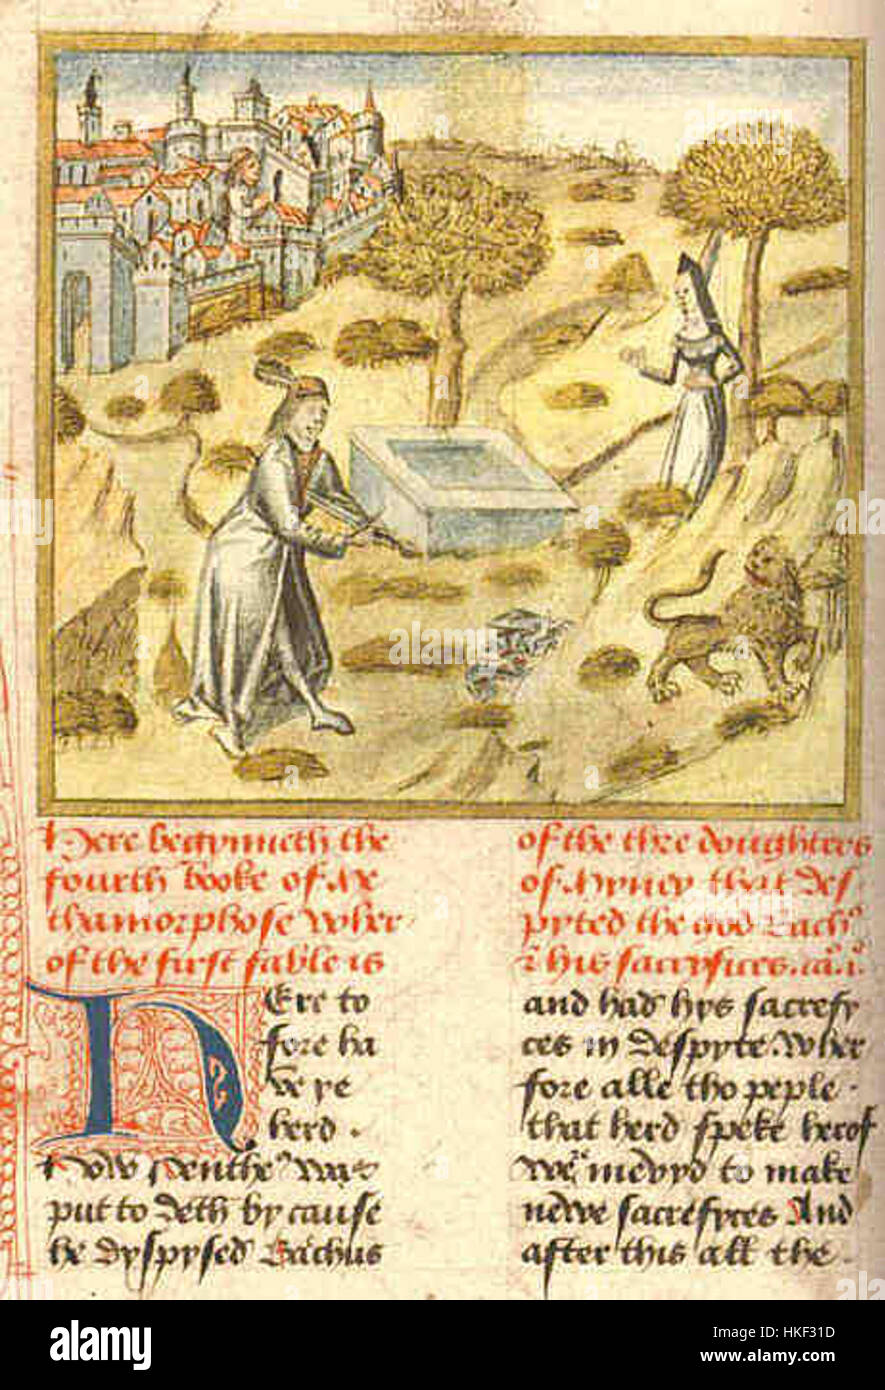 Here begynneth the
fourth booke of Me
thamorphose wher
of the first fable is
of the thre doughtres
of Myney that des
pyted the god Bachus
& his sacryfices. ca. i.
HEre to
fore ha
ve ye
herd.
How Penthe' was
put to deth by cause
he dyspysed Bachus
and had hys sacrefy
ces in despyte. wher
fore alle tho peple.
that herd speke herof
were mevyd to make
newe sacrefyces And
after this all the.
alamy
Image ID: HKF31D
www.alamy.com